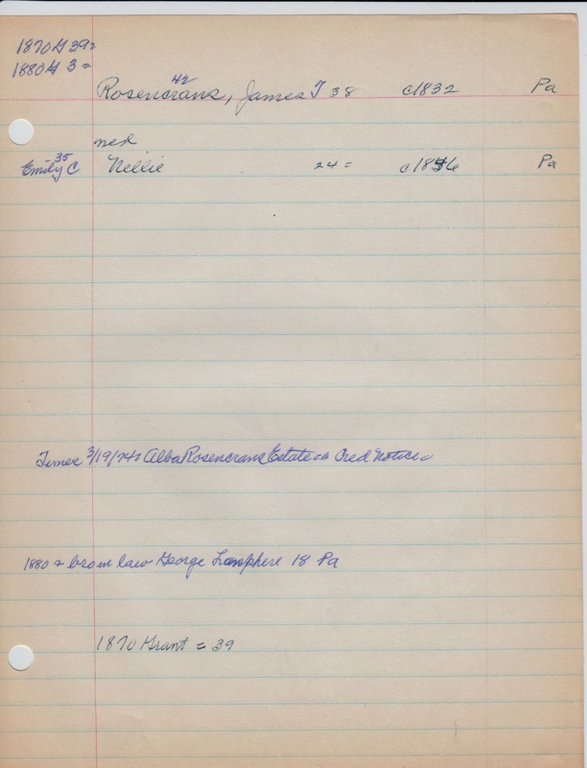 1870 G 39=
1880 G 3=
42
Rosencrans, James T 38 c1832 Pa
md
35
Emily C Nellie 24= c1846 Pa
Times 3/19/74= Alba Rosencrans Estate Cred Notice
1880= bro in law George Lamphere 18 Pa
1870 Grant = 39